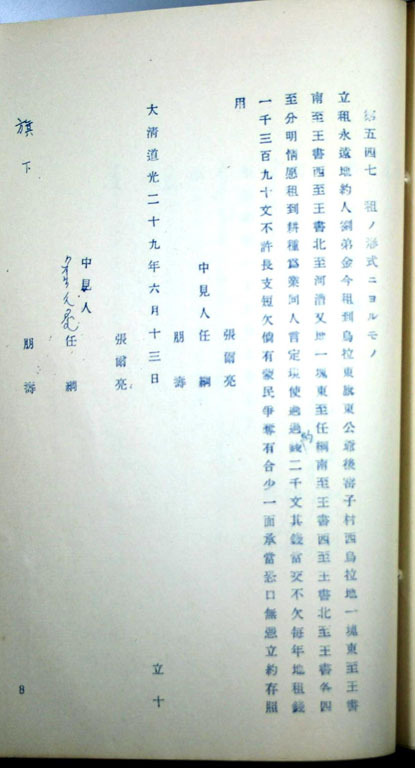 第五四七 租ノ形式ニヨルモノ
立租永遠地約人劉弟金今租到烏拉東旗東公爺後寨子村西烏拉地一塊東至王書
南至王書西至王書北至河漕又地一塊東至任綱南至王書西至王書北至王書各四
至分明情愿租到耕種爲業同人言定現使過過錢二千文其錢當交不欠每年地租錢
約
一千三百九十文不許長支短欠儻有蒙民爭奪有合少一面承當恐口無憑立約存照
用
張爾亮
中見人任綱
朋壽
大清道光二十九年六月十三日 立十
張爾亮
中見人任綱
朋壽
旗下
8